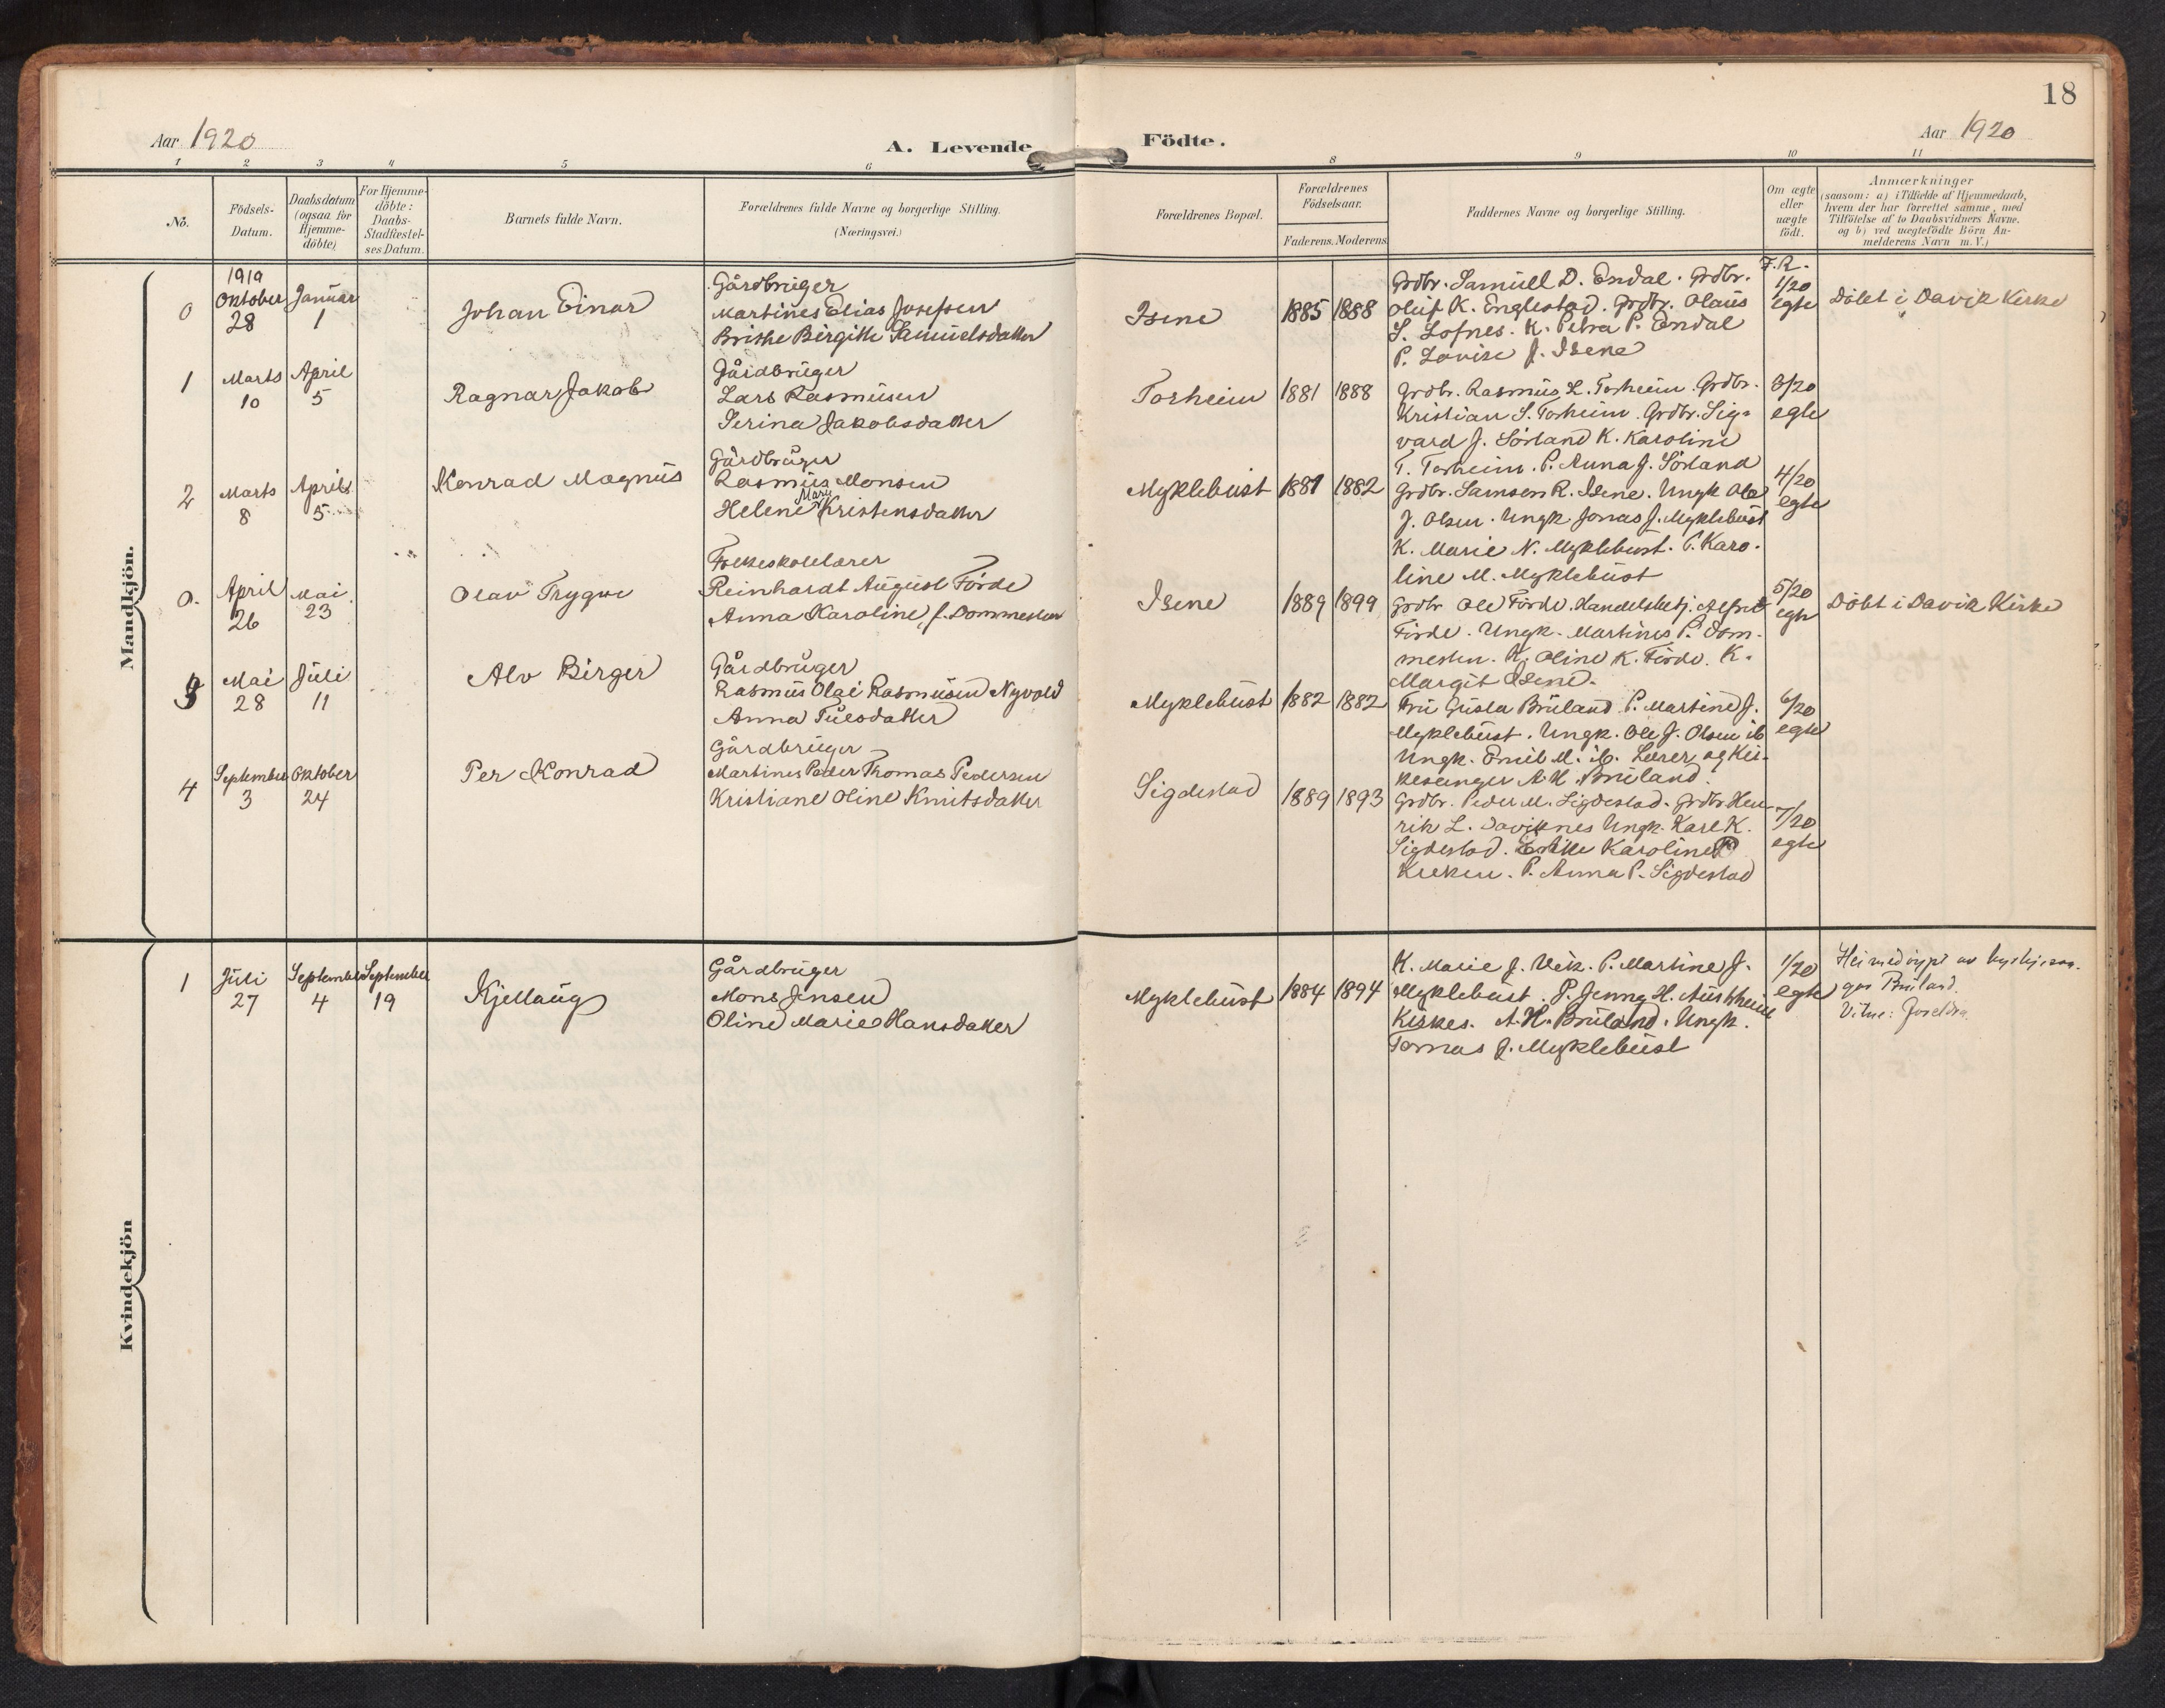 18
Aar 1920
A. Levende
Födte.
Aar 1920
1 2 3 4 5 6
8 9 10 11
No.
Födsels-
Datum.
Daabsdatum
(ogsaa for
Hjemme-
döbte)
For Hjemme-
döbte:
Daabs-
Stadfæstel-
ses Datum.
Barnets fulde Navn.
Forældrenes fulde Navne og borgerlige Stilling.
(Næringsvei.)
Forældrenes Bopæl.
Forældrenes
Födselsaar.
Faderens. Moderens
Faddernes Navne og borgerlige Stilling.
Om ægte
eller
uægte
födt.
Anmærkninger
(saasom: a) i Tilfælde af Hjemmedaab,
hvem der har forrettet samme, med
Tilföielse af to Daabsvidners Navne.
og b) ved uægtefödte Börn An-
melderens Navn m. V.)
Mandkjön.
0
1919
Oktober
28
Januar
1
Johan Einar
Gårdbruger
Martines Elias Josefsen
Brithe Birgithe Samuelsdatter
Isene
1885 1888
Grdbr. Samuell D. Endal. Grdbr.
Oluf K. Englestad. Grdbr. Olaus
S. Lofnes. K. Petra P. Endal
P. Lovise J. Isene
F.R.
1/20
egte
Döbt i Davik Kirke
1
Marts
10
April
5
Ragnar Jakob
Gårdbruger
Lars Rasmusen
Serina Jakobsdatter
Torheim
1881 1888
Grdbr. Rasmus L. Torheim. Grdbr.
Kristian S. Torheim. Grdbr. Sig-
vard J. Sörland K. Karoline
T. Torheim. P. Anna J. Sörland
3/20
egte
2
Marts
8
April
5
Konrad Magnus
Gårdbruger
Rasmus Monsen
Helene Marie Kristensdatter
Myklebust
1881 1882
Grdbr. Samson R. Isene. Ungk Ole
J. Olsen. Ungk. Jonas J. Myklebust
K. Marie N. Myklebust. P. Karo-
line M. Myklebust
4/20
egte
0.
April
26
Mai
23
Olav Trygve
Folkeskolelærer
Reinhardt August Förde
Anna Karoline, f. Dommesten
Isene
1889 1899
Grdbr Ole Förde. Handelsbetj. Alfred
Förde. Ungk. Martines P. Dom-
mesten. K. Oline K. Förde. K.
Margit Isene.
5/20
egte
Döbt i Davik Kirke
3
Mai
28
Juli
11
Alv Birger
Gårdbruger
Rasmus Olai Rasmusen Nyvold
Anna Tuesdatter
Myklebust
1882 1882
Fru Gusta Bruland P. Martine J.
Myklebust. Ungk. Ole J. Olsen ib
Ungk. Emil M. ib. Lærer og Kir-
kesanger A. H. Bruland.
6/20
egte
4
September
3
Oktober
24
Per Konrad
Gårdbruger
Martines Peder Thomas Pedersen
Kristiane Oline Knutsdatter
Sigdestad
1889 1893
Grdbr. Peder M. Sigdestad. Grdbr Hen-
rik L. Daviknes Ungk. Karl K.
Sigdestad. Enke Karoline P
P. Anna P. Sigdestad
7/20
egte
Kvindekjön
1
Juli
27
September
4
September
19
Kjellaug
Gårdbruger
Mons Jensen
Oline Marie Hansdatter
Myklebust
1884 1894
K. Marie J. Vik. P. Martine J.
Myklebust. P. Jenny H. Austrheim
Kirkes. A. H. Bruland. Ungk.
Tomas J. Myklebust
1/20
egte
Heimedöypt av kyrkjesan-
gar Bruland.
Vitne: Foreldra.